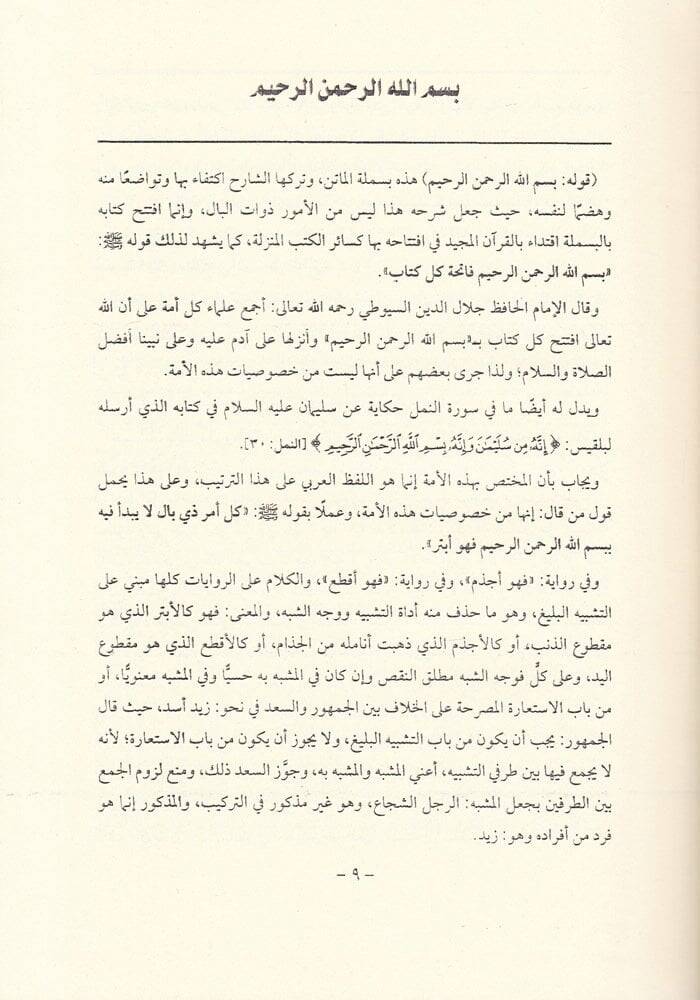 بسم الله الرحمن الرحيم
(قوله: بسم الله الرحمن الرحيم) هذه بسملة الماتن، وتركها الشارح اكتفاء بها وتواضعًا منه
وهضمًا لنفسه، حيث جعل شرحه هذا ليس من الأمور ذوات البال، وإنما افتتح كتابه
بالبسملة اقتداء بالقرآن المجيد في افتتاحه بها كسائر الكتب المنزلة، كما يشهد لذلك قوله ﷺ:
«بسم الله الرحمن الرحيم فاتحة كل كتاب».
وقال الإمام الحافظ جلال الدين السيوطي رحمه الله تعالى: أجمع علماء كل أمة على أن الله
تعالى افتتح كل كتاب بـ«بسم الله الرحمن الرحيم» وأنزلها على آدم عليه وعلى نبينا أفضل
الصلاة والسلام؛ ولذا جرى بعضهم على أنها ليست من خصوصيات هذه الأمة.
ويدل له أيضًا ما في سورة النمل حكاية عن سليمان عليه السلام في كتابه الذي أرسله
لبلقيس: ﴿إِنَّهُۥ مِن سُلَيْمَٰنَ وَإِنَّهُۥ بِسْمِ ٱللَّهِ ٱلرَّحْمَٰنِ ٱلرَّحِيمِ﴾ [النمل: ٣٠].
ويجاب بأن المختص بهذه الأمة إنما هو اللفظ العربي على هذا الترتيب، وعلى هذا يحمل
قول من قال: إنها من خصوصيات هذه الأمة، وعملًا بقوله ﷺ: «كل أمر ذي بال لا يبدأ فيه
ببسم الله الرحمن الرحيم فهو أبتر».
وفي رواية: «فهو أجذم»، وفي رواية: «فهو أقطع»، والكلام على الروايات كلها مبني على
التشبيه البليغ، وهو ما حذف منه أداة التشبيه ووجه الشبه، والمعنى: فهو كالأبتر الذي هو
مقطوع الذنب، أو كالأجذم الذي ذهبت أنامله من الجذام، أو كالأقطع الذي هو مقطوع
اليد، وعلى كلٍّ فوجه الشبه مطلق النقص وإن كان في المشبه به حسيًّا وفي المشبه معنويًّا، أو
من باب الاستعارة المصرحة على الخلاف بين الجمهور والسعد في نحو: زيد أسد، حيث قال
الجمهور: يجب أن يكون من باب التشبيه البليغ، ولا يجوز أن يكون من باب الاستعارة؛ لأنه
لا يجمع فيها بين طرفي التشبيه، أعني المشبه والمشبه به، وجوَّز السعد ذلك، ومنع لزوم الجمع
بين الطرفين بجعل المشبه: الرجل الشجاع، وهو غير مذكور في التركيب، والمذكور إنما هو
فرد من أفراده وهو: زيد.
– ٩ –